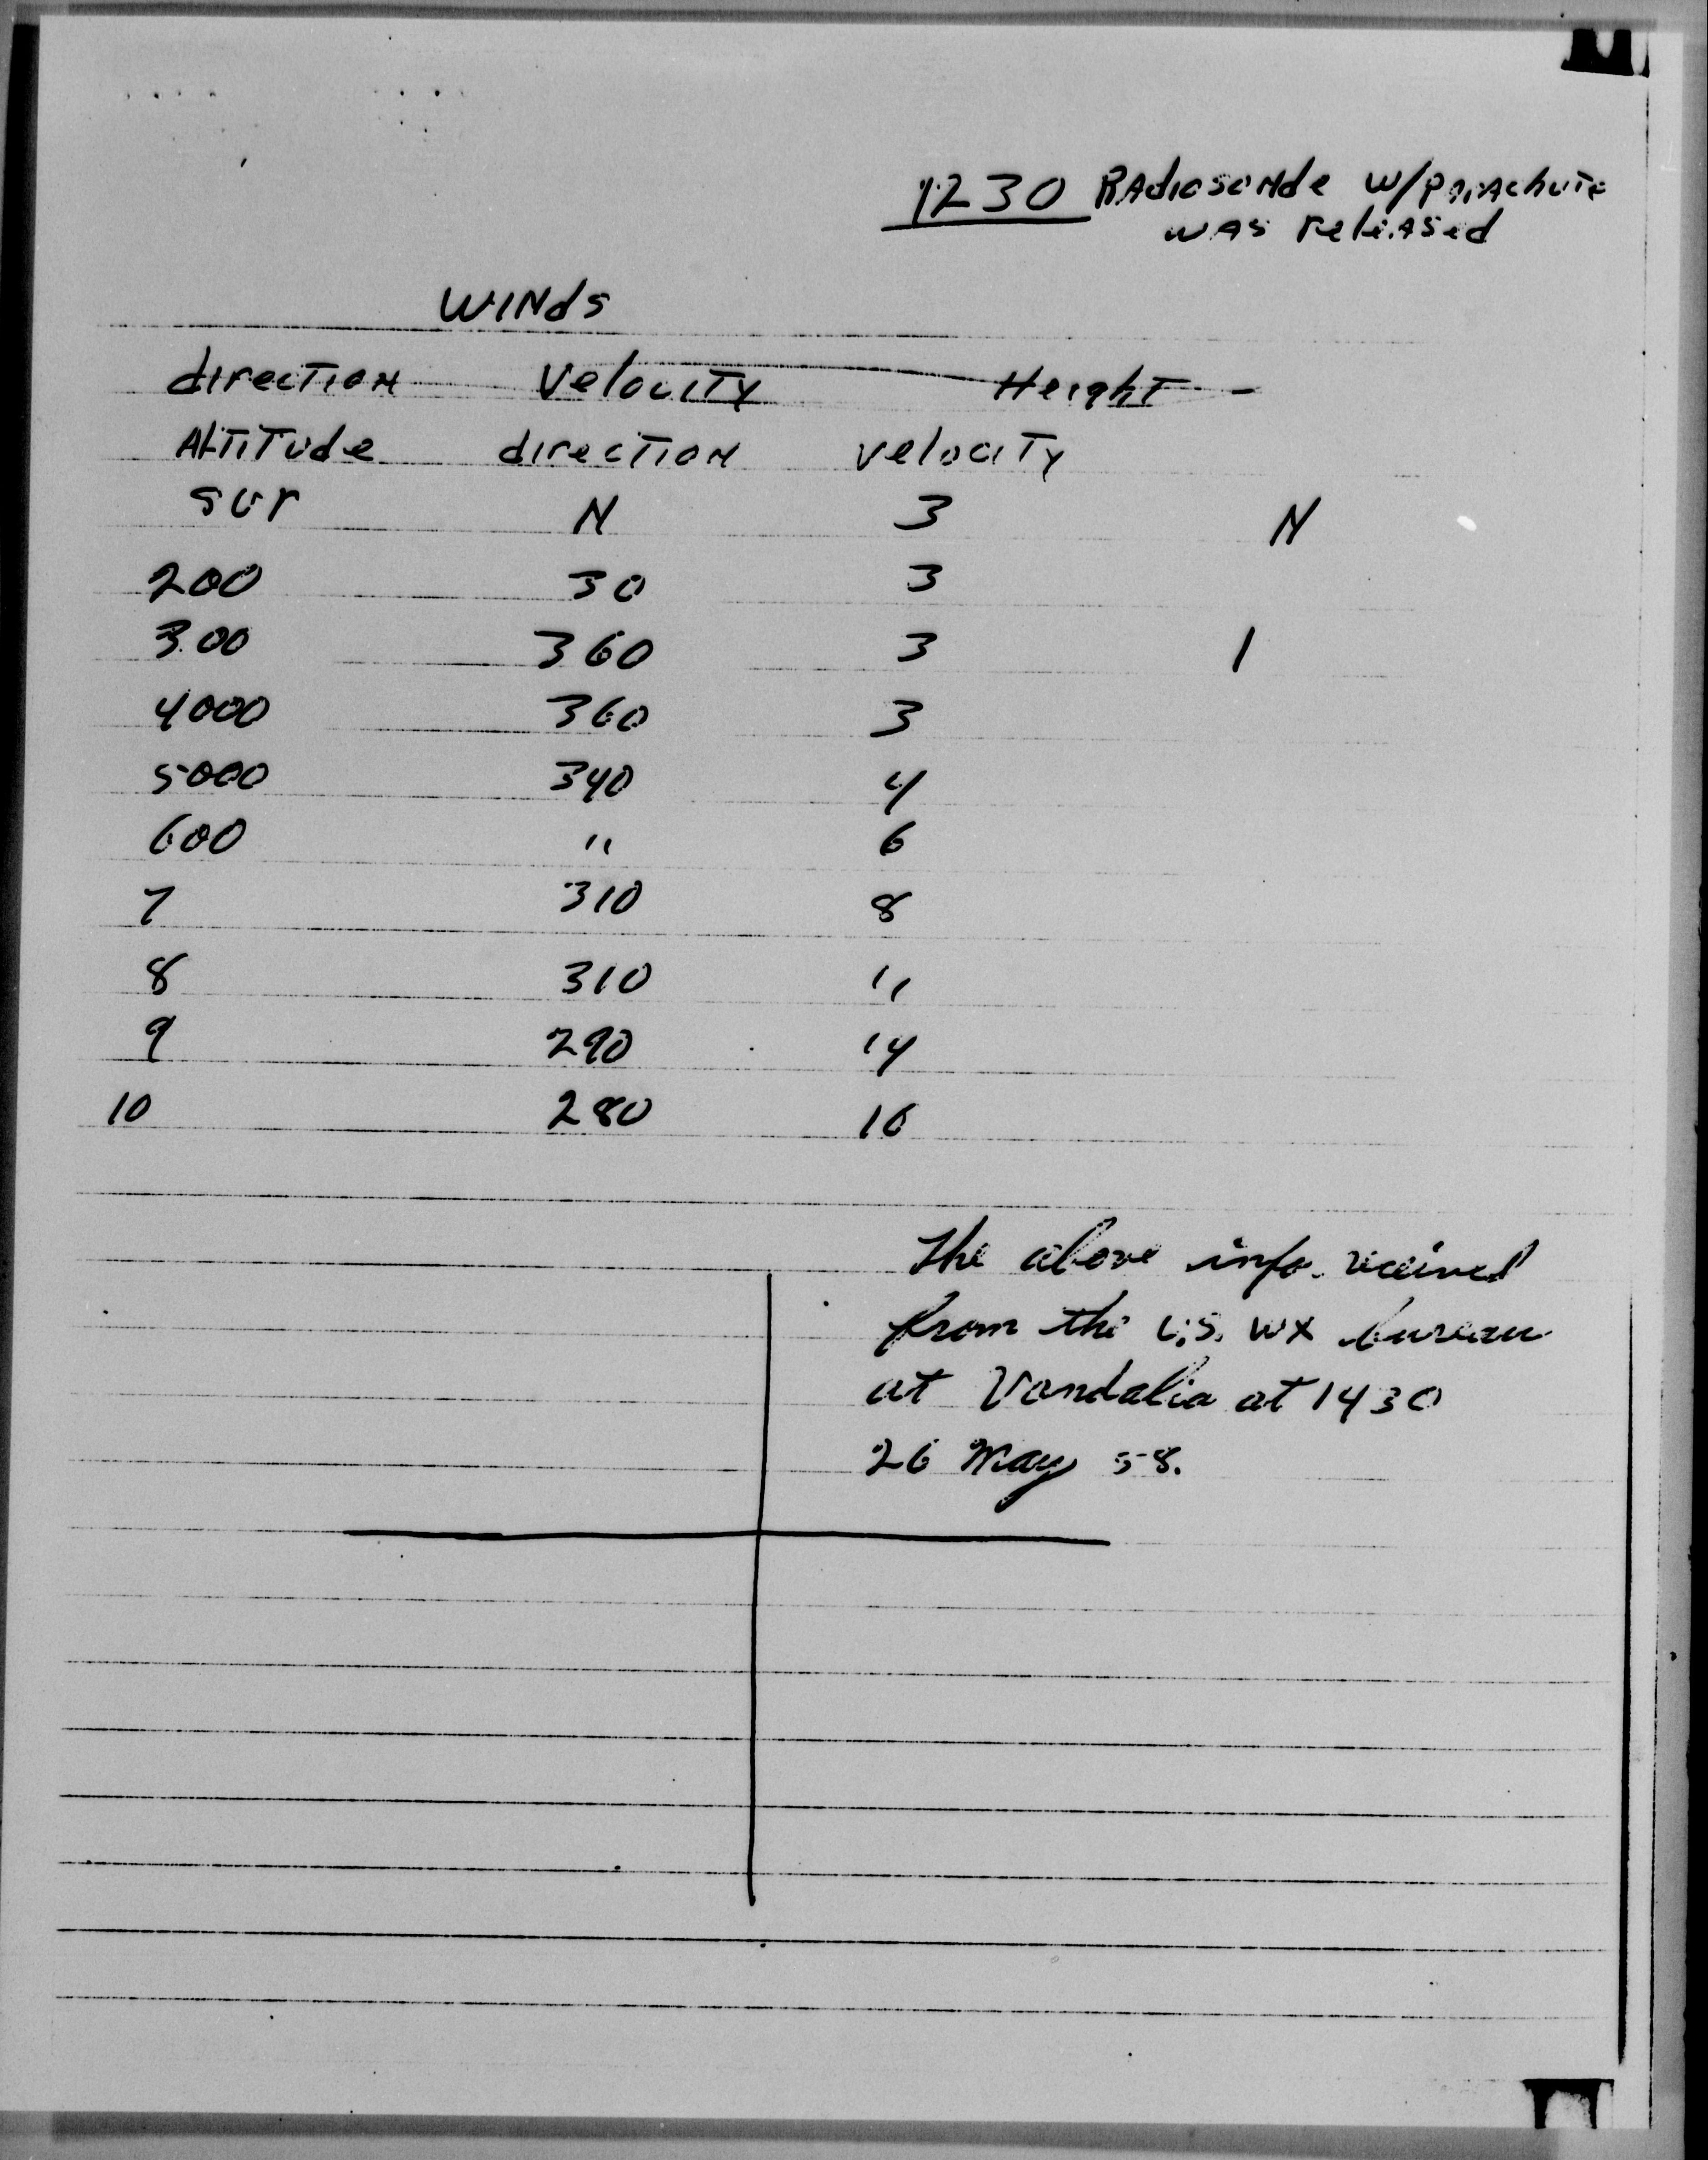 1230 RAdiosoNde w/pArAchute
was releAsed
WINds
direcTioN Velocity Height -
AlTiTude direcTioN velociTy
sur N 3 N
200 30 3
300 360 3 1
4000 360 3
5000 340 4
600 " 6
7 310 8
8 310 "
9 290 14
10 280 16
The above info. received
from the U.S. WX bureau
at Vandalia at 1430
26 May 58.